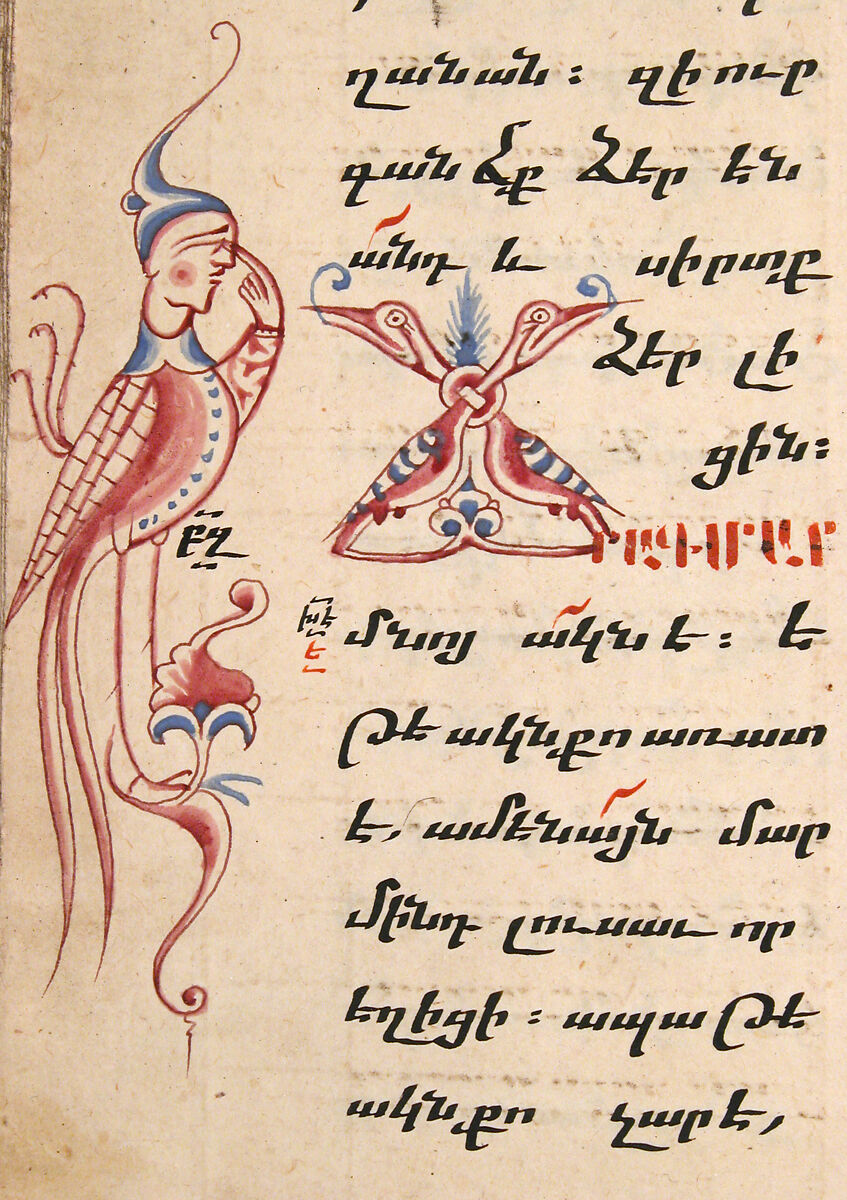 ղանան։ զի ուր
գանձք ձեր են
անդ և սիրտք
ձեր լի
ցին։
ՃՐԱԳՄԱՐ
խէ
ե
մնոյ ակն է։ ե
թէ ակն քո առատ
է, ամենայն մար
մինդ լուսաւոր
եղիցի։ ապա թէ
ակն քո չար է,